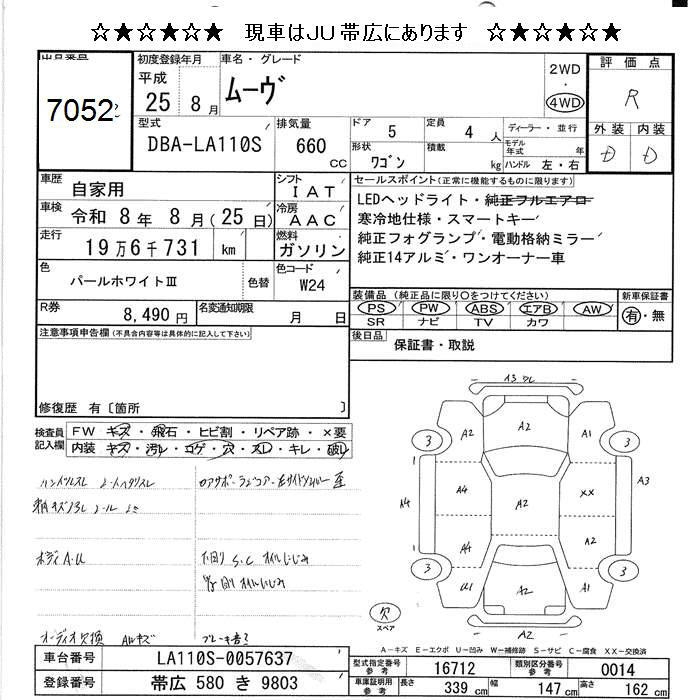 ☆★☆★☆★ 現車はJU帯広にあります ☆★☆★☆★
出品番号 初度登録年月 車名・グレード 2WD 評価点
7052 平成 25 8月 ムーヴ ・ 4WD R
型式 排気量 ドア 5 定員 4人 ディーラー・並行 外装 内装
DBA-LA110S 660 CC 形状 ワゴン 積載 kg モデル年式 年 ハンドル 左・右 D D
車歴 自家用 シフト IAT セールスポイント(正常に機能するものに限ります)
車検 令和 8年 8月(25日) 冷房 AAC LEDヘッドライト・純正フルエアロ
寒冷地仕様・スマートキー
走行 19万6千731 km 燃料 ガソリン 純正フォグランプ・電動格納ミラー
純正14アルミ・ワンオーナー車
色 パールホワイトⅢ 色替 色コード W24
装備品(純正品に限り○をつけてください) 新車保証書
PS PW ABS エアB AW 有・無
SR ナビ TV カワ
R券 8,490円 名変通知期限 月 日
注意事項申告欄(不具合内容等は具体的に記入して下さい) 後日品 保証書・取説
修復歴 有〔箇所 〕
検査員記入欄 FW キズ・飛石・ヒビ割・リペア跡・×要
内装 キズ・汚れ・コゲ・穴・スレ・キレ・破れ
A3
A2
3 A2 A1 3
A4 A4 A2 XX A3
A4 A2
3 U1 A2 A1 3
A2
欠
スペア
ボディA・U
下回り S.C オイルにじみ
オーディオ欠損 AWキズ
A－キズ E－エクボ U－凹み W－補修跡 S－サビ C－腐食 XX－交換済
車台番号 LA110S-0057637 型式指定番号 参考 16712 類別区分番号 参考 0014
登録番号 帯広 580 き 9803 車庫証明用 参考 長さ 339 cm 幅 147 cm 高さ 162 cm